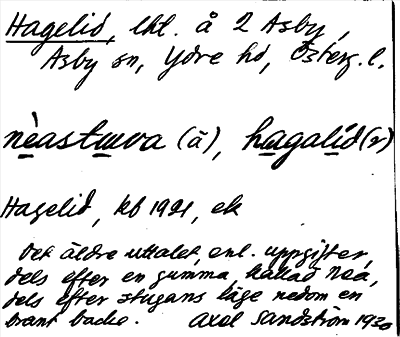 Hagelid, lht. å 2 Asby,
Asby sn, Ydre hd, Österg. l.
nèastuva (ä), hagalíd (2)
Hagelid, kb 1921, ek
Det äldre uttalet, enl. uppgifter,
dels efter en gumma kallad Nea,
dels efter stugans läge nedom en
brant backe. Axel Sandström 1930